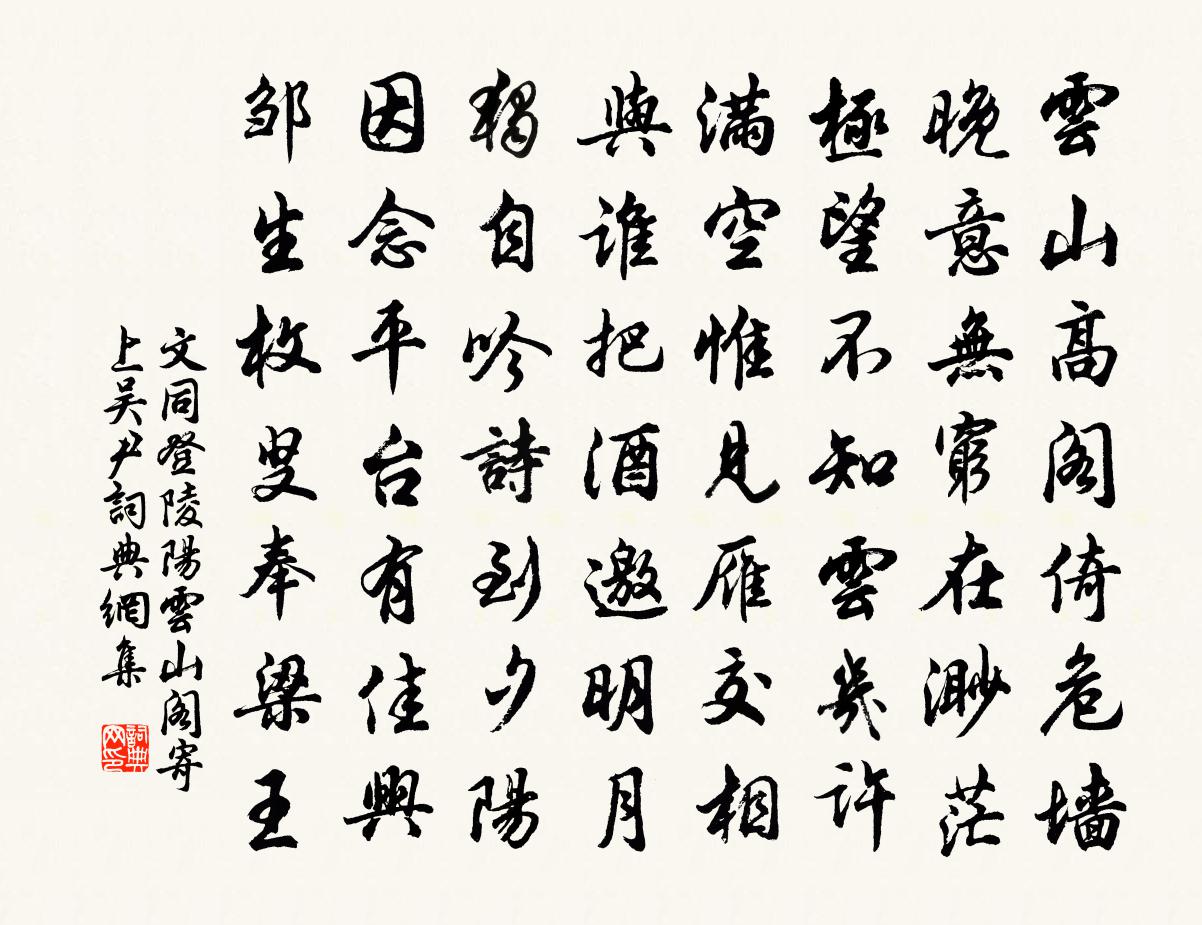 雲山高阁倚危墙
晚意無窮在渺茫
極望不知雲幾許
满空惟見雁交相
與谁把酒邀明月
獨自吟詩到夕陽
因念平台有佳興
邹生枚叟奉梁王
文同登陵陽雲山阁寄
上吴尹詞典網集
詞典
网印